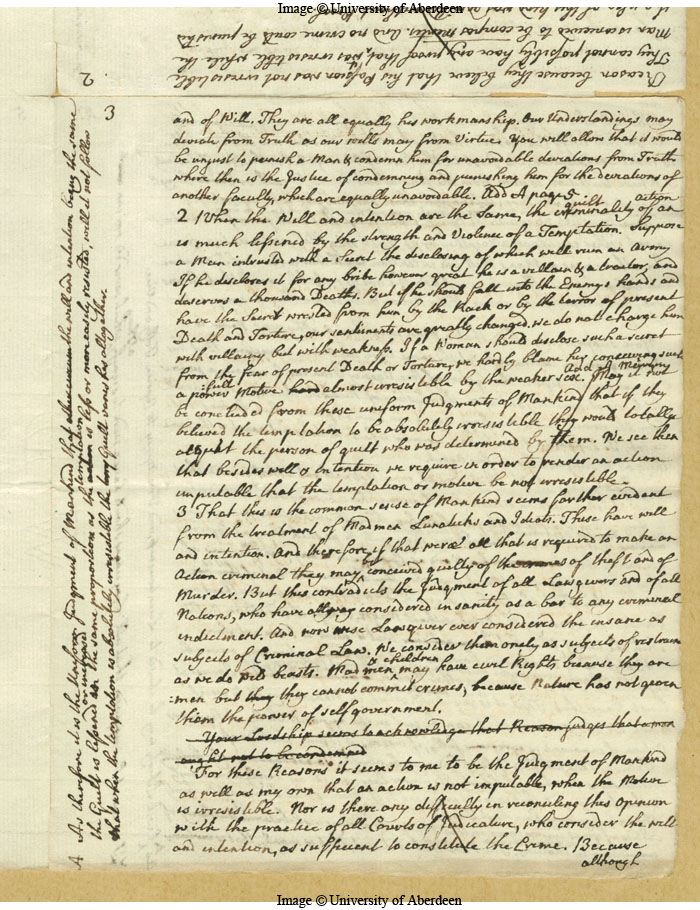 Image © University of Aberdeen
Reason because they believe that his Passion was not irresistible
They cannot probably have any proof that it was irresistible while the
Man is conceived to be compos mentis and no crime could be punished
2
3
and of Will. They are all equally his workmanship. Our Understandings may
deviate from Truth as our wills may from Virtue. You will allow that it would
be unjust to punish a Man & condemn him for unavoidable deviations from Truth
where then is the Justice of condemning and punishing him for the deviations of
another faculty, which are equally unavoidable. Add A page 5.
guilt action
2 When the Will and intention are the Same, the criminality of an
is much lessened by the strength and Violence of a Temptation. Suppose
a Man intrusted with a Secret the disclosing of which will ruin an Army
If he discloses it for any bribe however great he is a villain & a traitor, and
deserves a thousand Deaths. But if he should fall into the Enemys hands and
have the Secret wrested from him by the Rack or by the terror of present
Death and Torture, our sentiments are greatly changed. we do not charge him
with villainy but with weakness. If a Woman should disclose such a secret
from the fear of present Death or Torture, we hardly blame her conceiving such
a power Motive almost irresistible by the weaker sex. May it not
be concluded from these uniform Judgments of Mankind that if they
believed the temptation to be absolutely irresistible they would totally
acquit the person of guilt who was determined by them. We see then
that besides will & Intention we require in order to render an action
imputable that the temptation or motive be not irresistible.
3 That this is the common sense of Mankind seems farther evident
from the treatment of Madmen Lunaticks and Idiots. These have will
and intention. And therefore if that were all that is required to make an
be
Action criminal they may conceived guilty of the crimes of theft and of
Murder. But this contradicts the Judgment of all Lawgivers and of all
Nations, who have allway considered insanity as a bar to any criminal
indictment. And now wise Lawgiver ever considered the insane as
subjects of Criminal Law. We consider them only as subjects of restraint
& children
as we do wild beasts. Madmen may have civil Rights because they are
men but they cannot commit crimes, because Nature has not given
them the power of self government.
Your Lordship seems to acknowledge that Reason judges that a man
ought not to be condemned
For these Reasons it seems to me to be the Judgment of Mankind
as well as my own that an action is not imputable, when the Motive
is irresistible. Nor is there any difficulty in reconciling this opinion
with the practice of all Courts of Judicature, who consider the will
and intention, as sufficient to constitute the Crime. Because
although
A As therefore it is the Uniform Judgment of Mankind that the will and intention being the same
the Guilt is lessened in the same proportion as the temptation is less or more easily resisted, will it not follow
that when the temptation is absolutely irresistible the Guilt vanishes altogether.
Image © University of Aberdeen